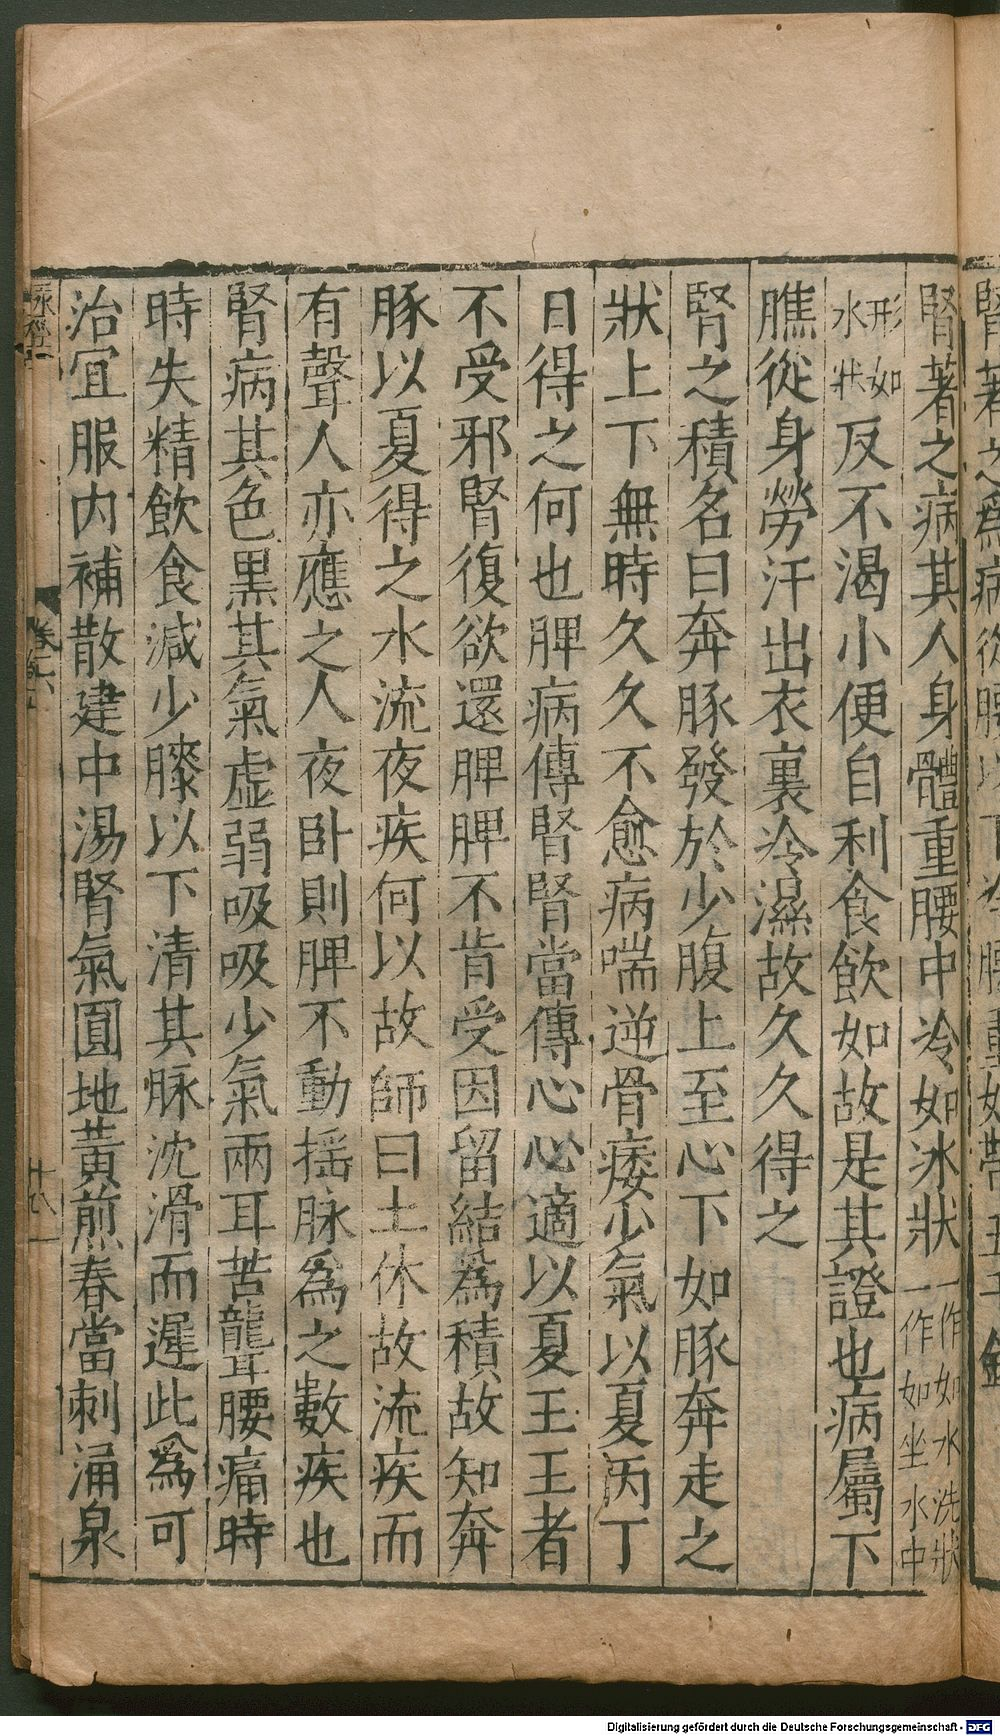 腎著之爲病從腰以下冷腰重如帶五千錢
腎著之病其人身體重腰中冷如冰狀一作如水洗狀一作如坐水中
形如水狀反不渴小便自利食飲如故是其證也病屬下
膲從身勞汗出衣裏冷濕故久久得之
腎之積名曰奔豚發於少腹上至心下如豚奔走之
狀上下無時久久不愈病喘逆骨痿少氣以夏丙丁
日得之何也脾病傳腎腎當傳心心適以夏王王者
不受邪腎復欲還脾脾不肯受因留結爲積故知奔
豚以夏得之水流夜疾何以故師曰土休故流疾而
有聲人亦應之人夜卧則脾不動搖脉爲之數疾也
腎病其色黑其氣虚弱吸吸少氣兩耳苦聾腰痛時
時失精飲食減少膝以下清其脉沈滑而遲此爲可
治宜服内補散建中湯腎氣圓地黄煎春當刺涌泉
脉經
卷六
十八
Digitalisierung gefördert durch die Deutsche Forschungsgemeinschaft - DFG